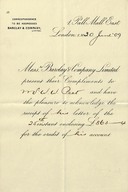 CORRESPONDENCE
TO BE ADDRESSED
BARCLAY & COMPANY,
LIMITED
1 Pall Mall East
London 20 June '09
Messrs Barclay & Company Limited
present their Compliments to
Mr
and have
the pleasure to acknowledge the
receipt of his letter of the
instant enclosing
for the credit of his account